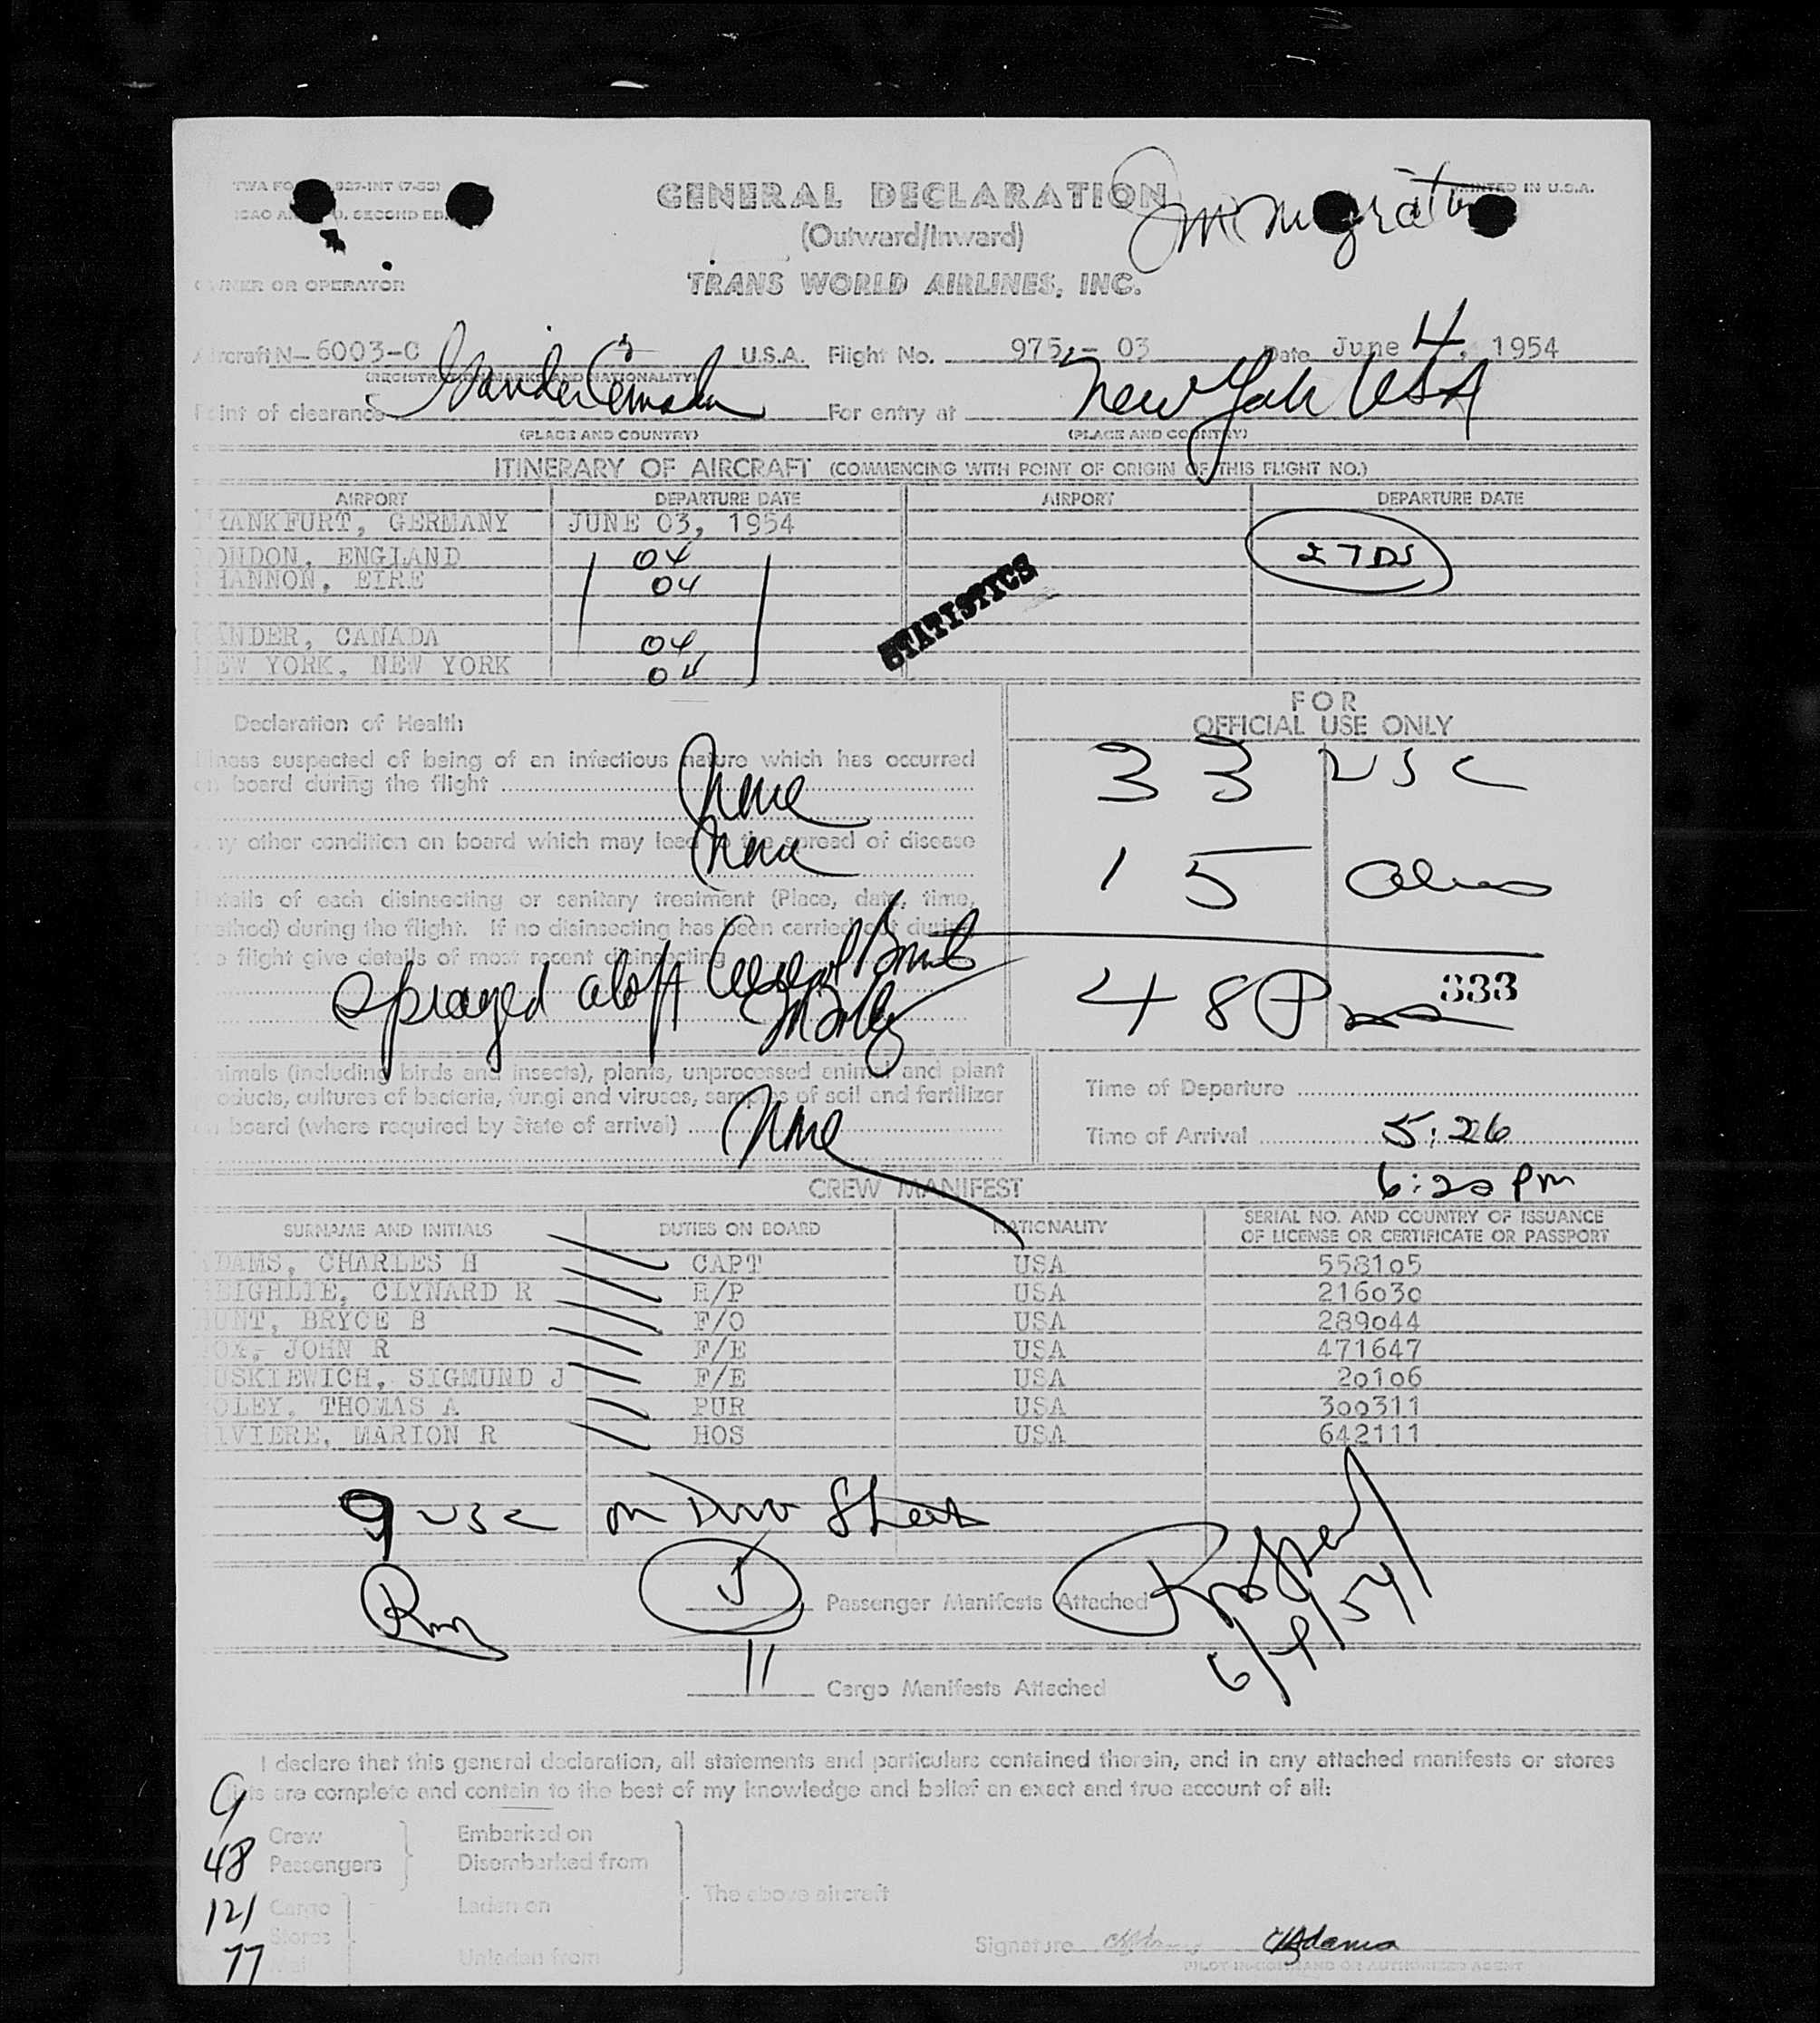 GENERAL DECLARATION
Immigration
PRINTED IN U.S.A.
(Outward/Inward)
OWNER OR OPERATOR
TRANS WORLD AIRLINES, INC.
Aircraft N- 6003-C U.S.A. Flight No. 975 - 03 Date June 4, 1954
(REGISTRATION MARKS AND NATIONALITY)
Point of clearance Gander Canada For entry at New York USA
(PLACE AND COUNTRY) (PLACE AND COUNTRY)
ITINERARY OF AIRCRAFT (COMMENCING WITH POINT OF ORIGIN OF THIS FLIGHT NO.)
AIRPORT DEPARTURE DATE AIRPORT DEPARTURE DATE
RANKFURT, GERMANY JUNE 03, 1954
ONDON, ENGLAND 04
HANNON, EIRE 04
27DS
STATISTICS
ANDER, CANADA 04
EW YORK, NEW YORK 04
FOR
OFFICIAL USE ONLY
Declaration of Health
Illness suspected of being of an infectious nature which has occurred
on board during the flight None
Any other condition on board which may lead to the spread of disease
None
Details of each disinsecting or sanitary treatment (Place, date, time,
method) during the flight. If no disinsecting has been carried out during
the flight give details of most recent disinsecting
sprayed aloft
33 USC
15 aliens
48 P
333
Animals (including birds and insects), plants, unprocessed animal and plant
products, cultures of bacteria, fungi and viruses, samples of soil and fertilizer
on board (where required by State of arrival) None
Time of Departure
Time of Arrival 5:26
6:20 Pm
CREW MANIFEST
SURNAME AND INITIALS DUTIES ON BOARD NATIONALITY SERIAL NO. AND COUNTRY OF ISSUANCE
OF LICENSE OR CERTIFICATE OR PASSPORT
DAMS, CHARLES H CAPT USA 558105
EIGHLIE, CLYNARD R R/P USA 216030
UNT, BRYCE B F/O USA 289044
OX, JOHN R F/E USA 471647
USKIEWICH, SIGMUND J F/E USA 20106
OLEY, THOMAS A PUR USA 300311
IVIERE, MARION R HOS USA 642111
9 USC on two Sheets
Passenger Manifests Attached
6/4/54
11 Cargo Manifests Attached
I declare that this general declaration, all statements and particulars contained therein, and in any attached manifests or stores
lists are complete and contain to the best of my knowledge and belief an exact and true account of all:
9 Crew Embarked on
48 Passengers Disembarked from
The above aircraft
121 Cargo Laden on
Stores
77 Mail Unladen from
Signature CHAdams CHAdams
PILOT IN-COMMAND OR AUTHORIZED AGENT